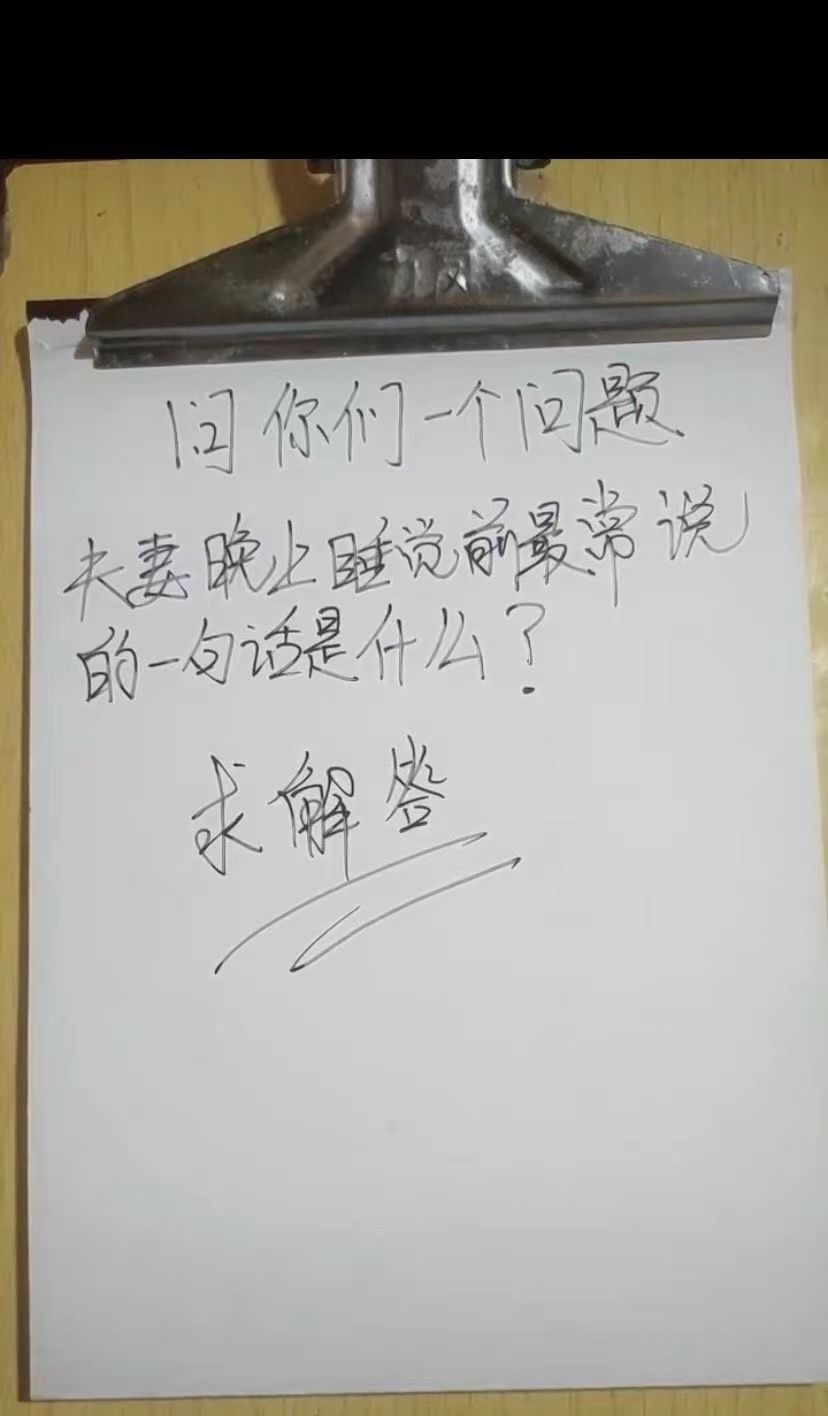 问你们一个问题
夫妻晚上睡觉前最常说
的一句话是什么?
求解答